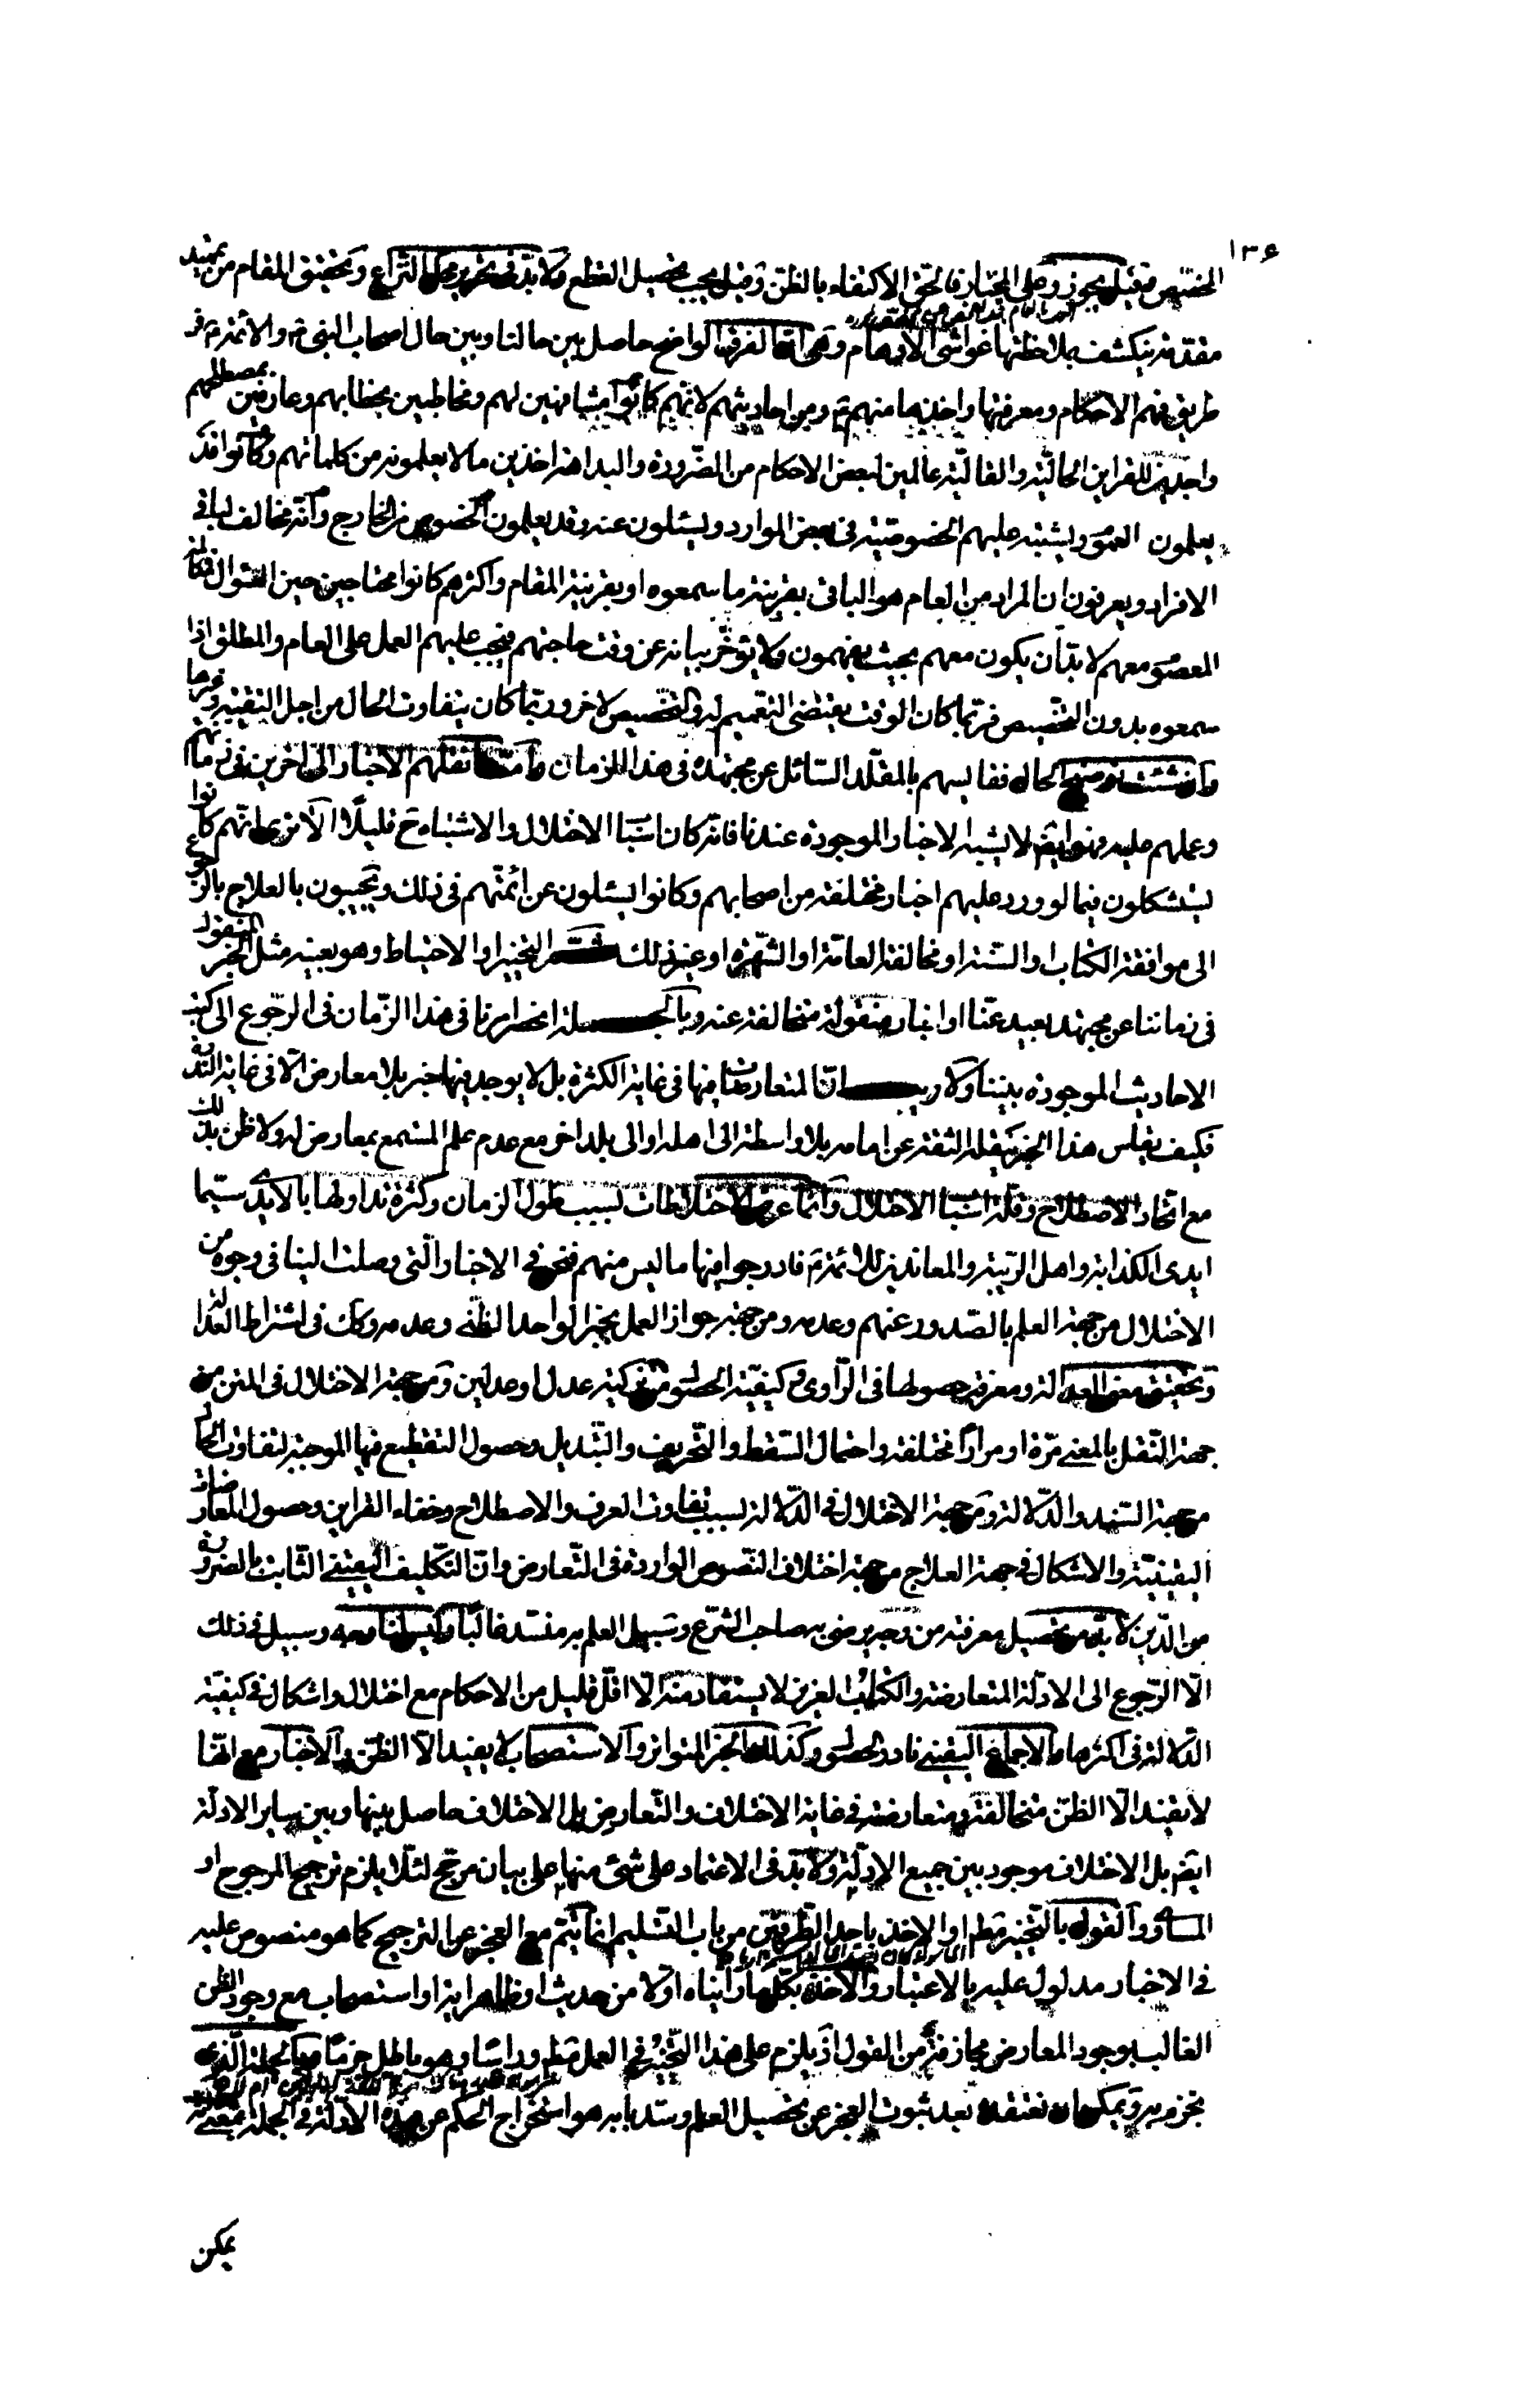 ١٣٤
المخصص فقيل يجوز وعلى المختار فالحق الاكتفاء بالظن وقيل يجب تحصيل القطع ولا بد في تحرير محل النزاع وتحقيق المقام من تمهيد
مقدمة ينكشف بملاحظتها غواشي الأوهام وهي ان الفرق الواضح حاصل بين حالنا وبين حال اصحاب النبي ص والأئمة ع في
طريق فهم الاحكام ومعرفتها واخذها منهم ع ومن احاديثهم لانهم كانوا مشافهين لهم ومخاطبين بخطابهم وعارفين بمصطلحهم
واجدين للقراين الحالية والمقالية عالمين لبعض الاحكام من الضرورة والبداهة اخذين ما لا يعلمونه من كلماتهم وكانوا قد
يعلمون العموم ويشتبه عليهم الخصوصية في بعض الموارد ويسئلون عنه وقد يعلمون الخصوص من الخارج وانه مخالف لباقي
الافراد ويعرفون ان المراد من العام هو الباقي بقرينة ما سمعوه او بقرينة المقام واكثرهم كانوا محتاجين حين السؤال فكالمة
المعصوم معهم لا بد ان يكون معهم بحيث يفهمون ولا يؤخر بيانه عن وقت حاجتهم فيجب عليهم العمل على العام والمطلق اذا
سمعوه بدون التخصيص فربما كان الوقت يقتضي التعميم له والتخصيص لاخر وربما كان يتفاوت الحال من اجل التقية وغيرها
وان شئت توضيح الحال فقايسهم بالمقلد السائل عن مجتهده في هذا الزمان وأما نقلهم الاخبار الى اخرين في زمانهم
وعملهم عليه فهو ايضم لا يشبه الاخبار الموجودة عندنا فانه كان اسباب الاختلال والاشتباه ح قليلا الا ترى انهم كانوا
يستشكلون فيما لو ورد عليهم اخبار مختلفة من اصحابهم وكانوا يسئلون عن ائمتهم في ذلك ويجيبون بالعلاج بالرجوع
الى موافقة الكتاب او السنة او مخالفة العامة او الشهرة او غير ذلك ثم التخيير او الاحتياط وهو بعينه مثل الخبر المنقول
في زماننا عن مجتهد بعيد عنا او اخبار منقولة متخالفة عنه وبالجملة انحصر امرنا في هذا الزمان في الرجوع الى كتب
الاحاديث الموجودة بيننا ولا ريب ان المتعارضات فيها في غاية الكثرة بل لا يوجد فيها خبر بلا معارض الا في غاية الندرة
فكيف يقاس هذا بخبر ينقله الثقة عن امامه بلا واسطة الى اهله او الى بلد اخر مع عدم علم المستمع بمعارض له ولا ظن بذلك
مع اتحاد الاصطلاح وقلة اسباب الاختلال وانما عرض الاختلاطات بسبب طول الزمان وكثرة تداولها بالايدي سيما
ايدي الكذابة واهل الريبة والمعاندين للائمة ع فادرجوا فيها ما ليس منهم فنحن في الاخبار التي وصلت الينا في وجوه من
الاختلال من جهة العلم بالصدور عنهم وعدمه ومن جهة جواز العمل بخبر الواحد الظني وعدمه وكك في اشتراط العدالة
وتحقيق معنى العدالة ومعرفة حصولها في الراوي وكيفية الحصول من تزكية عدل او عدلين ومن جهة الاختلال في المتن من
جهة النقل بالمعنى مرة او مرارا مختلفة واحتمال السقط والتحريف والتبديل وحصول التقطيع فيها الموجبة لتفاوت الحال
من جهة السند والدلالة ومن جهة الاختلال في الدلالة بسبب تفاوت العرف والاصطلاح وخفاء القراين وحصول المعارضات
اليقينية والاشكال في جهة العلاج من جهة اختلاف النصوص الواردة في التعارض وان التكليف اليقيني الثابت بالضرورة
من الدين لا بد من تحصيل معرفته من وجه يرضى به صاحب الشرع وسبيل العلم به منسد غالبا وليس لنا وجه وسبيل في ذلك
الا الرجوع الى الادلة المتعارضة والكتاب العزيز لا يستفاد منه الا اقل قليل من الاحكام مع اختلال واشكال في كيفية
الدلالة في اكثرها والاجماع اليقيني نادر الحصول وكذلك الخبر المتواتر والاستصحاب لا يفيد الا الظن والاخبار مع انها
لا تفيد الا الظن متخالفة ومتعارضة في غاية الاختلاف والتعارض بل الاختلاف حاصل بينها وبين ساير الادلة
ايضم بل الاختلاف موجود بين جميع الادلة ولا بد في الاعتماد على شئ منها على بيان مرجح لئلا يلزم ترجيح المرجوح او
المساوي والقول بالتخيير مطم او الاخذ باحد الطرفين من باب التسليم انما يتم مع العجز عن الترجيح كما هو منصوص عليه
في الاخبار مدلول عليه بالاعتبار والاخذ بكلما رايناه اولا من حديث او ظاهر اية او استصحاب مع وجود الظن
الغالب بوجود المعارض مجازفة من القول اذ يلزم على هذا التخيير في العمل مطم وراسا وهو باطل جزما فبالجملة الذي
نجزم به ويمكن ان نعتقده بعد ثبوت العجز عن تحصيل العلم وسد بابه هو استخراج الحكم عن هذه الادلة في الجملة بمعنى
يمكن